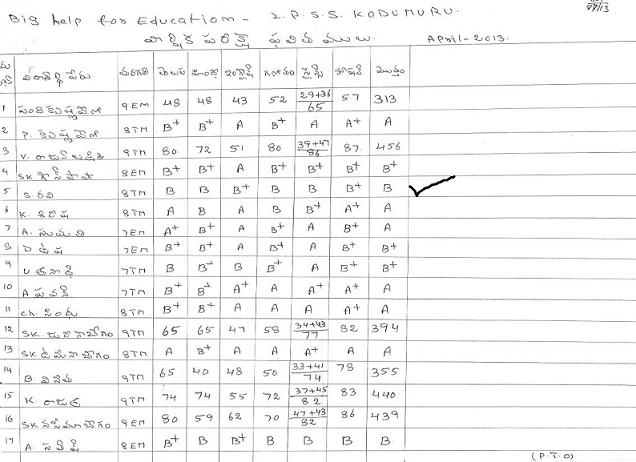 Big help for Education - Z.P.S.S. KODUMURU.
వార్షిక పరీక్ష ఫలితములు. April-2013.
పేరు తరగతి తెలుగు హిందీ ఇంగ్లీష్ గణితం సైన్స్ సోషల్ మొత్తం
1 9EM 48 48 43 52 29+36/65 57 313
2 P. 8TM B+ B+ A B+ A A+ A
3 V. 9TM 80 72 51 80 39+47/86 87 456
4 SK 8EM B+ B+ A B+ B+ B+ B+
5 S. రవి 8TM B B B+ B B B+ B
6 K. శిరీష 8TM A B A B B+ A+ A
7 A. సుమతి 7EM A+ B+ A B+ A B+ A
8 D 7EM B+ B+ A B+ A B+ B+
9 7TM B B+ B B+ A B+ B+
10 A పవన్ 7TM B+ B+ A+ A A+ A+ A
11 Ch. సింధు 8TM B+ B+ A A A A+ A
12 SK. 9TM 65 65 47 58 34+43/77 82 394
13 SK. 8TM A B+ A A A+ A A
14 B. వినీత 9TM 65 40 48 50 33+41/74 78 355
15 K. 9TM 74 74 55 72 37+45/82 83 440
16 SK 9EM 80 59 62 70 82 86 439
17 A. 8EM B+ B B+ B B B B
(P.T.O)